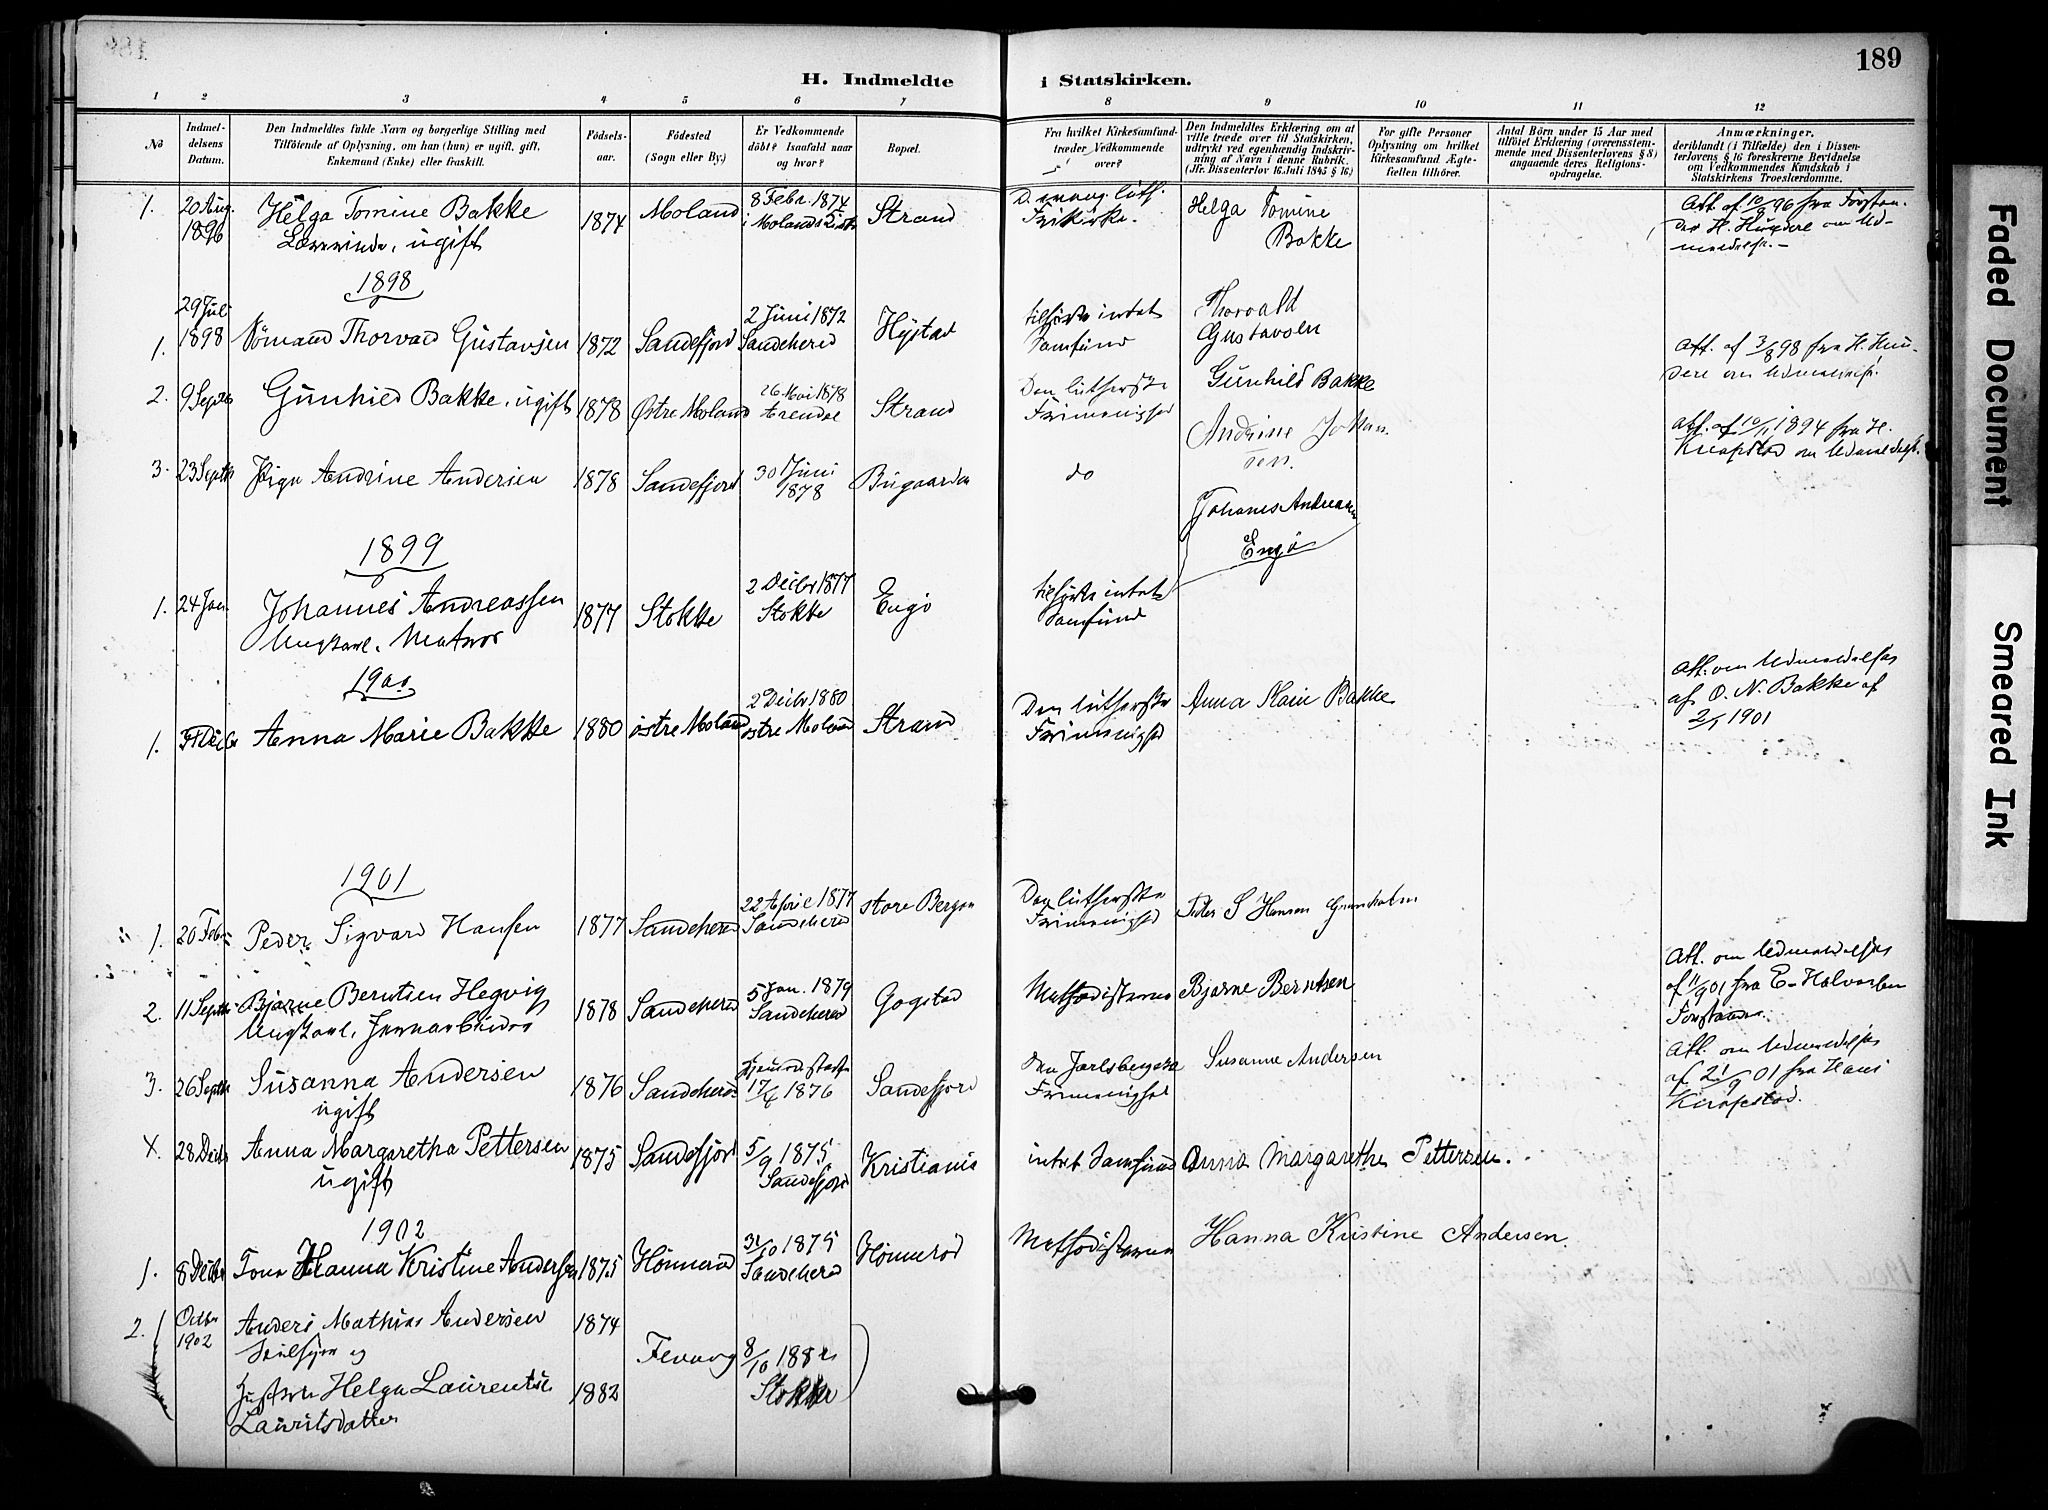 189
H. Indmeldte i Statskirken.
1 2 3 4 5 6 7 8 9 10 11 12
No
Indmel-
delsens
Datum.
Den Indmeldtes fulde Navn og borgerlige Stilling med
Tilföiende af Oplysning, om han (hun) er ugift, gift,
Enkemand (Enke) eller fraskilt.
Födsels-
aar.
Födested
(Sogn eller By.)
Er Vedkommende
döbt? Isaafald naar
og hvor?
Bopæl.
Fra hvilket Kirkesamfund
træder Vedkommende
over?
Den Indmeldtes Erklæring om at
ville træde over til Statskirken,
udtrykt ved egenhændig Indskriv-
ning af Navn i denne Rubrik.
(Jfr. Dissenterlov 16. Juli 1845 § 16)
For gifte Personer
Oplysning om hvilket
Kirkesamfund Ægte-
fællen tilhörer.
Antal Börn under 15 Aar med
tilföiet Erklæring (overensstem-
mende med Dissenterlovens § 8)
angaaende deres Religions-
opdragelse.
Anmærkninger.
deriblandt (i Tilfælde) den i Dissen-
terlovens § 16 foreskrevne Bevidnelse
om Vedkommendes Kundskab i
Statskirkens Troeslærdomme.
1. 20 Aug. 1896
Helga Tomine Bakke
Lærerinde, ugift
1874 Moland
8 Febr. 1874
i Molands
Strand
luth.
Frikirke.
Helga Tomine
Bakke
Att. af 96 fra Forstan-
der H. om Ud-
meldelse.-
1898
1. 29 Juli 1898
Sömand Thorvald Gustavsen 1872 Sandefjord
2 Juni 1872
Sandeherred
Hystad
tilhörte intet
Samfund
Thorvald
Gustavsen
Att. af 3/8 98 fra H. Hun-
dere om Udmeldelse.
2. 9 Septbr
Gunhild Bakke, ugift 1878 Østre Moland
26 Mai 1878
Arendal
Strand
Den lutherske
Frimenighed
Gunhild Bakke
Att. af 1894 fra H.
Knapstad om Udmeldelse.
3. 23 Septbr
Andrine Andersen 1878 Sandefjord
30 Juni
1878
Bugaarden
do
Andrine Johan-
sen.
1899
1. 24 Jan.
Johannes Andreassen
Ungkarl, Matros
1877 Stokke
2 Decbr 1877
Stokke
Engö
tilhörte intet
Samfund
Johanes Andreasen
Engö
1. Decbr
Anna Marie Bakke 1880 östre Moland
2 Decbr 1880
östre Moland
Strand
Den lutherske
Frimenighed
Anna Marie Bakke
Att. om Udmeldelse
af O. N. Bakke af
2/1 1901
1901
1. 20 Febr
Peder Sigvard Hansen 1877 Sandeherred
22 April 1877
Sandeherred
store Bergan
Den lutherske
Frimenighed
Peder S Hansen
2. 11 Septbr
Bjarne Berntsen Hegvig
Ungkarl, Jernarbeider
1878 Sandeherred
5 Jan. 1879
Sandeherred
Gogstad
Methodisternes
Bjarne Berntsen
Att. om Udmeldelse
af 11/9 01 fra E. Halvorsen
Forstander.
3. 26 Septbr
Susanna Andersen
ugift
1876 Sandeherred
Hjemmedöbt
1876
Sandefjord
den Jarlsbergske
Frimenighed
Susanne Andersen
Att. om Udmeldelse
af 21/9 01 fra Hans
Knapstad.
28 Decbr
Anna Margaretha Pettersen
ugift
1875 Sandefjord
5/9 1875
Sandefjord
Kristiania
intet Samfund
Anna Margarethe Pettersen.
1902
1. 8 Decbr
Hanna Kristine Andersen 1875 Hönneröd
31/10 1875
Sandeherred
Hönneröd
Methodisternes
Hanna Kristine Andersen.
2. Octbr 1902
Anders Mathias Andersen 1874
og
Hustru Helga Laurentse
Lauritsdatter
1882
8/10
Stokke
Faded Document
Smeared Ink